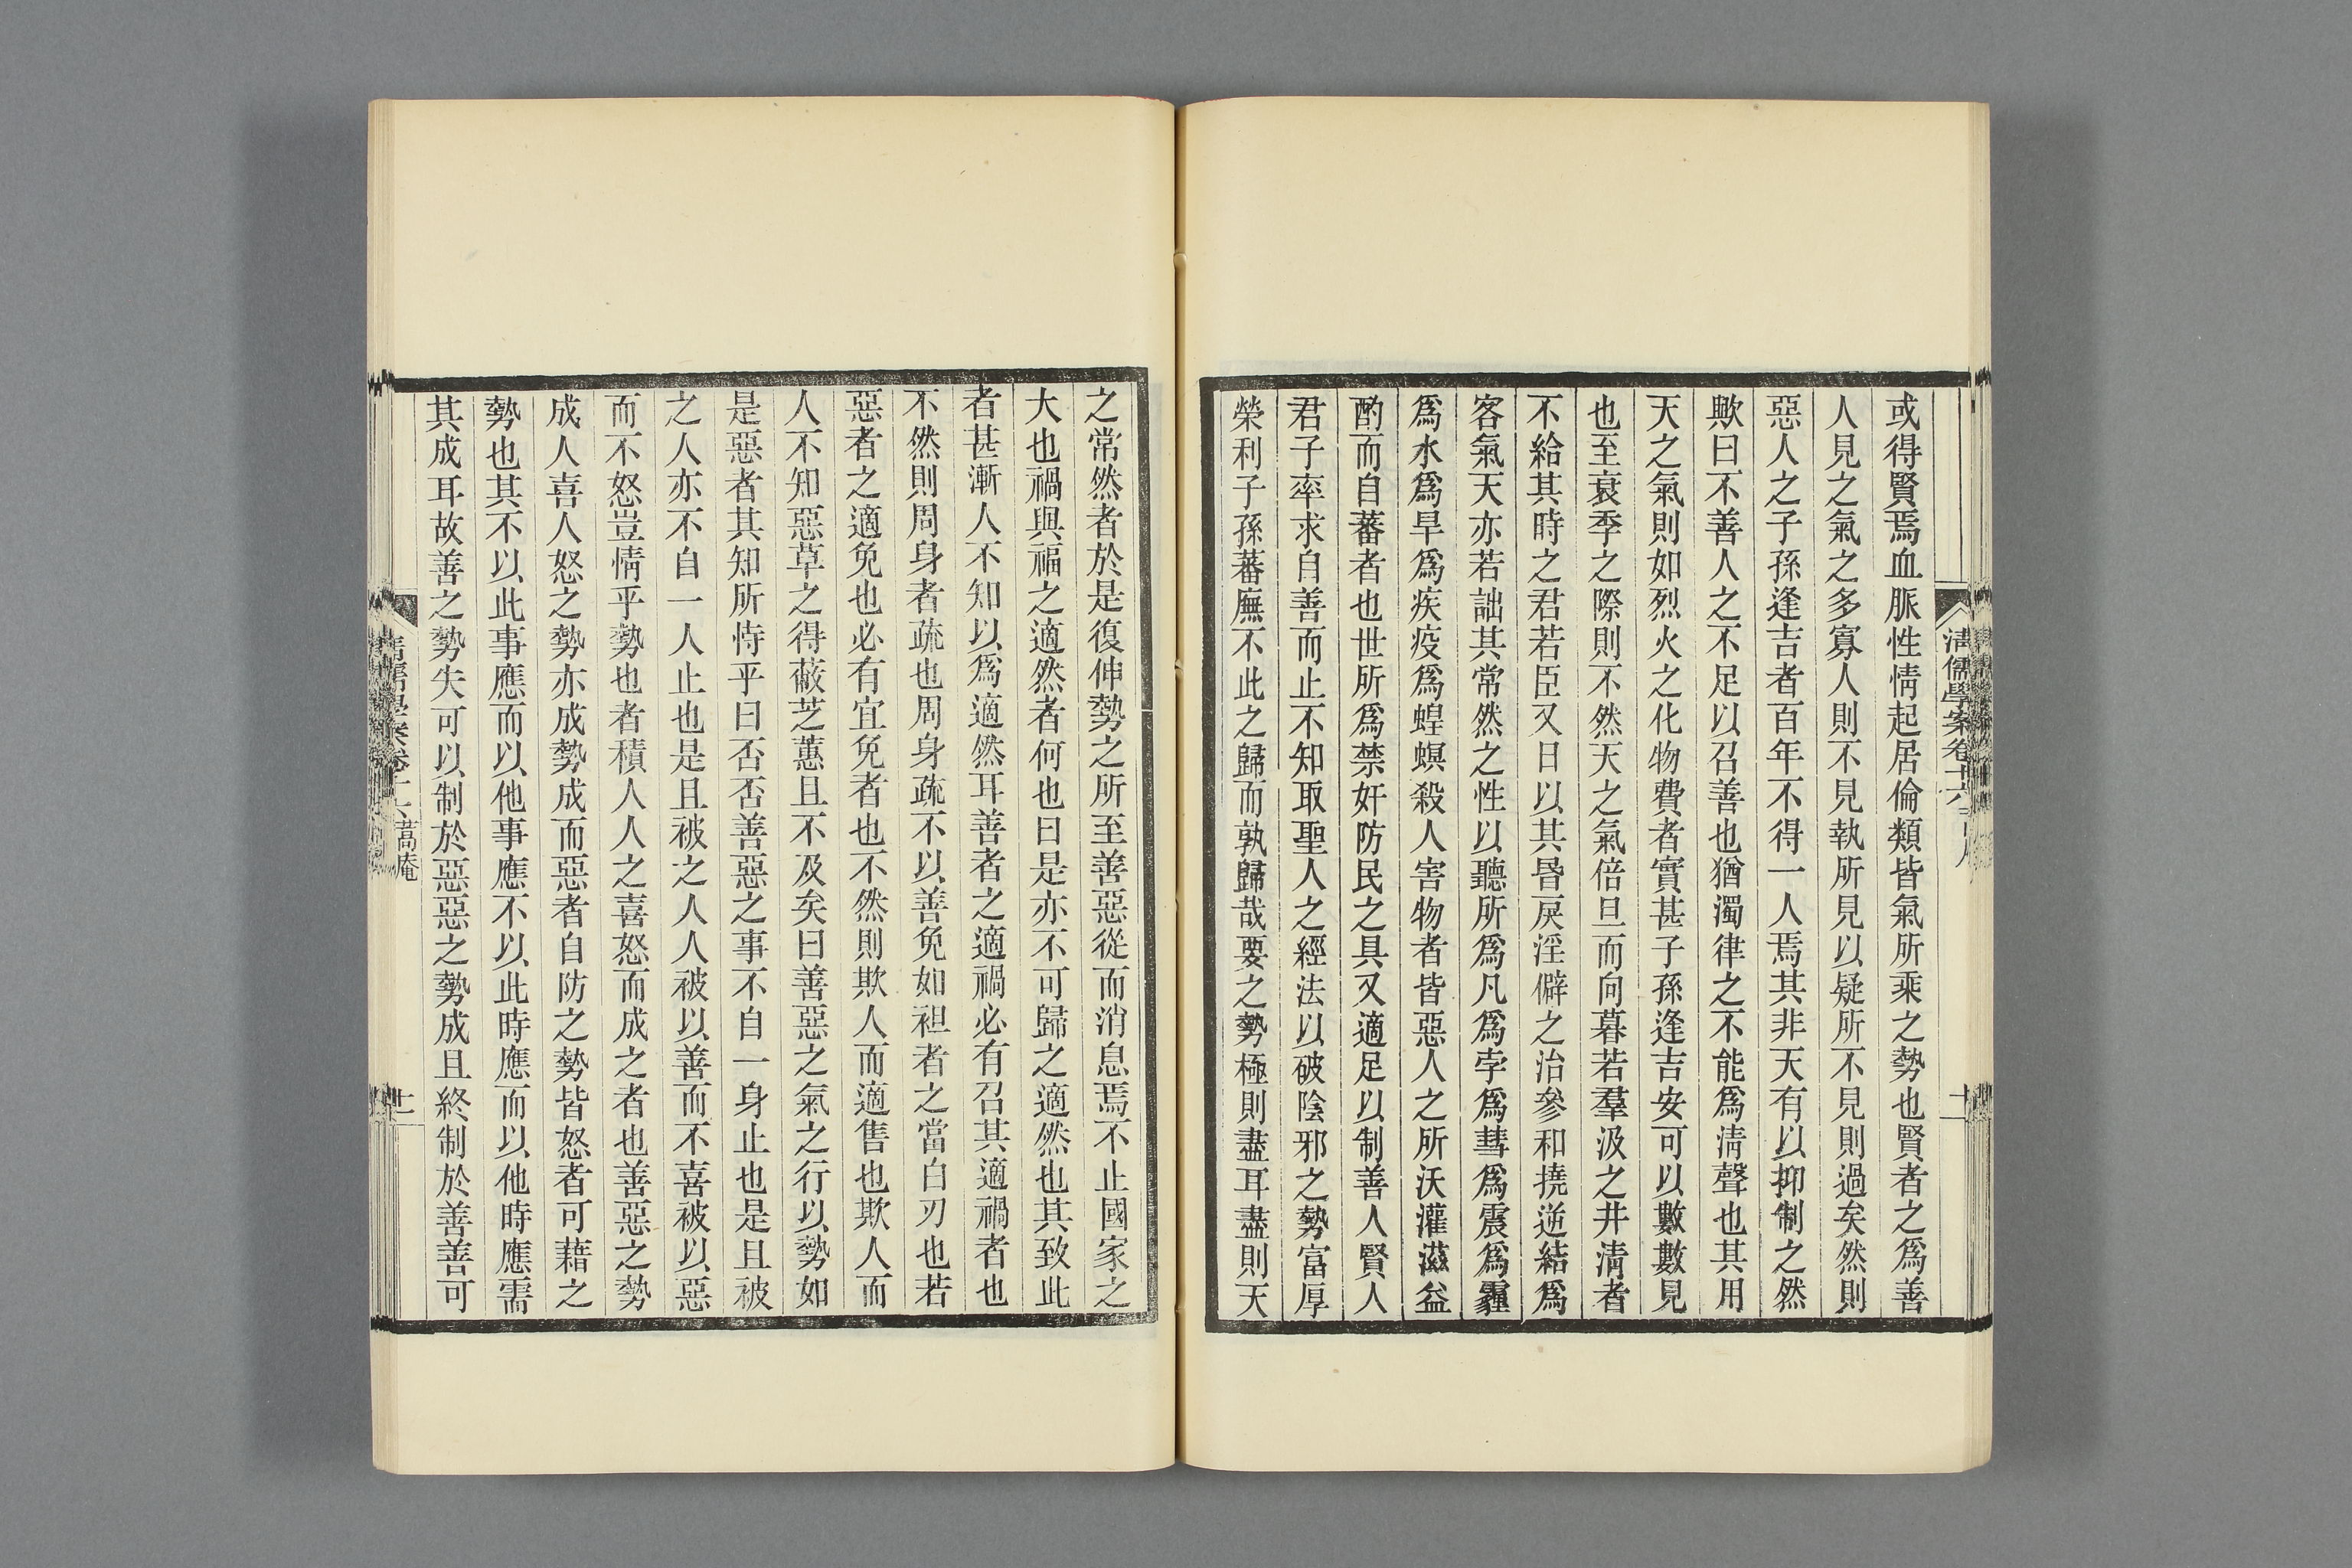 或得賢焉血脈性情起居倫類皆氣所乘之勢也賢者之爲善
人見之氣之多寡人則不見執所見以疑所不見則過矣然則
惡人之子孫逢吉者百年不得一人焉其非天有以抑制之然
歟曰不善人之不足以召善也猶濁律之不能爲淸聲也其用
天之氣則如烈火之化物費者實甚子孫逢吉安可以數數見
也至衰季之際則不然天之氣倍旦而向暮若羣汲之井淸者
不給其時之君若臣又日以其昬戾淫僻之治參和撓逆結爲
客氣天亦若詘其常然之性以聽所爲凡爲孛爲彗爲震爲霾
爲水爲旱爲疾疫爲蝗螟殺人害物者皆惡人之所沃灌滋益
酌而自蕃者也世所爲禁奸防民之具又適足以制善人賢人
君子率求自善而止不知取聖人之經法以破陰邪之勢富厚
榮利子孫蕃廡不此之歸而孰歸哉要之勢極則盡耳盡則天
淸儒學案卷十六
二
之常然者於是復伸勢之所至善惡從而消息焉不止國家之
大也禍與福之適然者何也曰是亦不可歸之適然也其致此
者甚漸人不知以爲適然耳善者之適禍必有召其適禍者也
不然則周身者疏也周身疏不以善免如袒者之當白刃也若
惡者之適免也必有宜免者也不然則欺人而適售也欺人而
人不知惡草之得蔽芝蕙且不及矣曰善惡之氣之行以勢如
是惡者其知所恃乎曰否否善惡之事不自一身止也是且被
之人亦不自一人止也是且被之人人被以善而不喜被以惡
而不怒豈情乎勢也者積人人之喜怒而成之者也善惡之勢
成人喜人怒之勢亦成勢成而惡者自防之勢皆怒者可藉之
勢也其不以此事應而以他事應不以此時應而以他時應需
其成耳故善之勢失可以制於惡惡之勢成且終制於善善可
淸儒學案卷十六 蒿庵